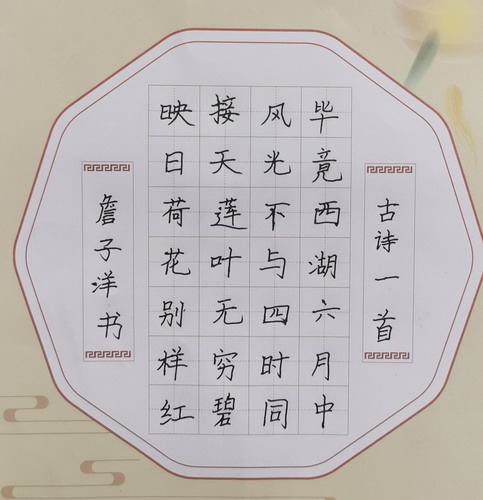 古诗一首
毕竟西湖六月中
风光不与四时同
接天莲叶无穷碧
映日荷花别样红
詹子洋书